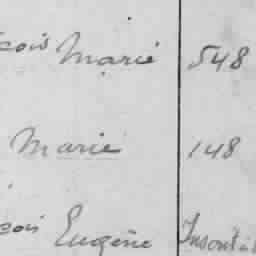 çois Marie 548
Marie 148
çois Eugène